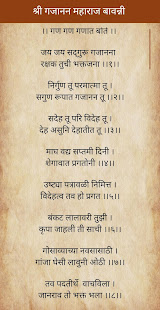 श्री गजानन महाराज बावन्नी
।। गण गण गणात बोते ।।
जय जय सद्गुरू गजानना
रक्षक तुची भक्तजना ।।१।।
निर्गुण तू परमात्मा तू ।
सगुण रूपात गजानन तू ।।२।।
सदेह तू परि विदेह तू ।
देह असुनि देहातीत तू ।।३।।
माघ वद्य सप्तमी दिनी ।
शेगावात प्रगटोनी ।।४।।
उष्ट्या पत्रावळी निमित्त ।
विदेहत्व तव हो प्रगत ।।५।।
बंकट लालावरी तुझी ।
कृपा जाहली ती साची ।।६।।
गोसाव्याच्या नवसासाठी ।
गांजा घेसी लावुनी ओठी ।।७।।
तव पदतीर्थे वाचविला ।
जानराव तो भक्त भला ।।८।।